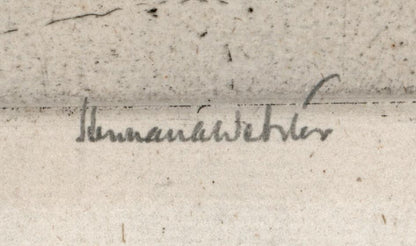 Herman A Webster